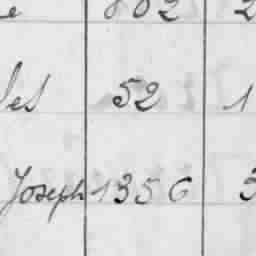 802 2
les 52 1
Joseph 1356 3